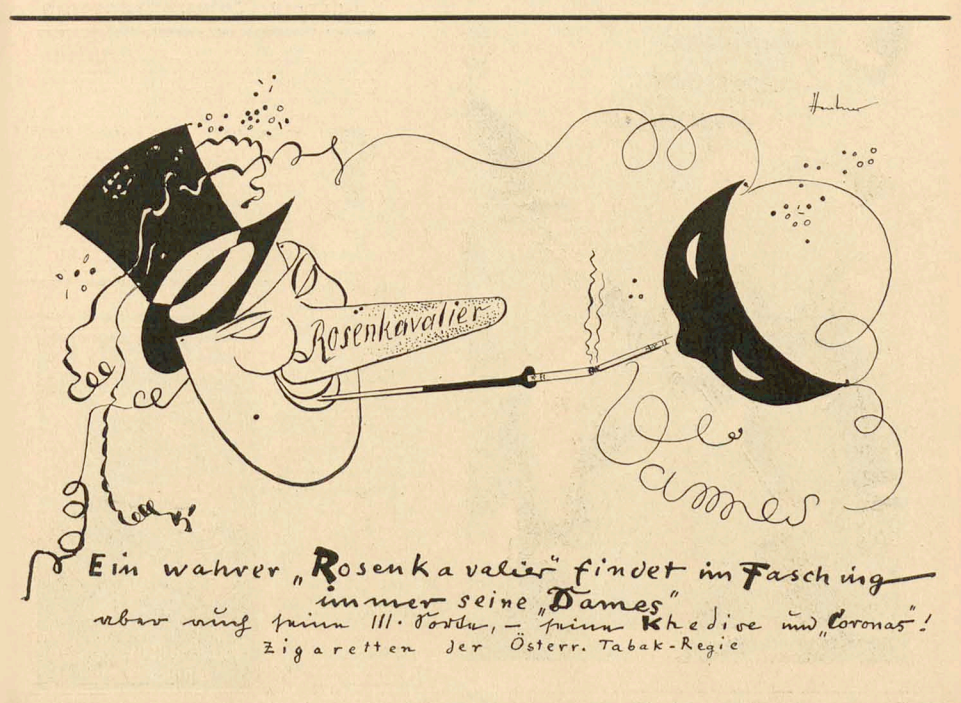 Rosenkavalier
Dames
Ein wahrer „Rosenkavalier“ findet im Fasching
immer seine „Dames“
aber auch seine III. Sorte, – seine Khedive und „Coronas“!
Zigaretten der Österr. Tabak-Regie